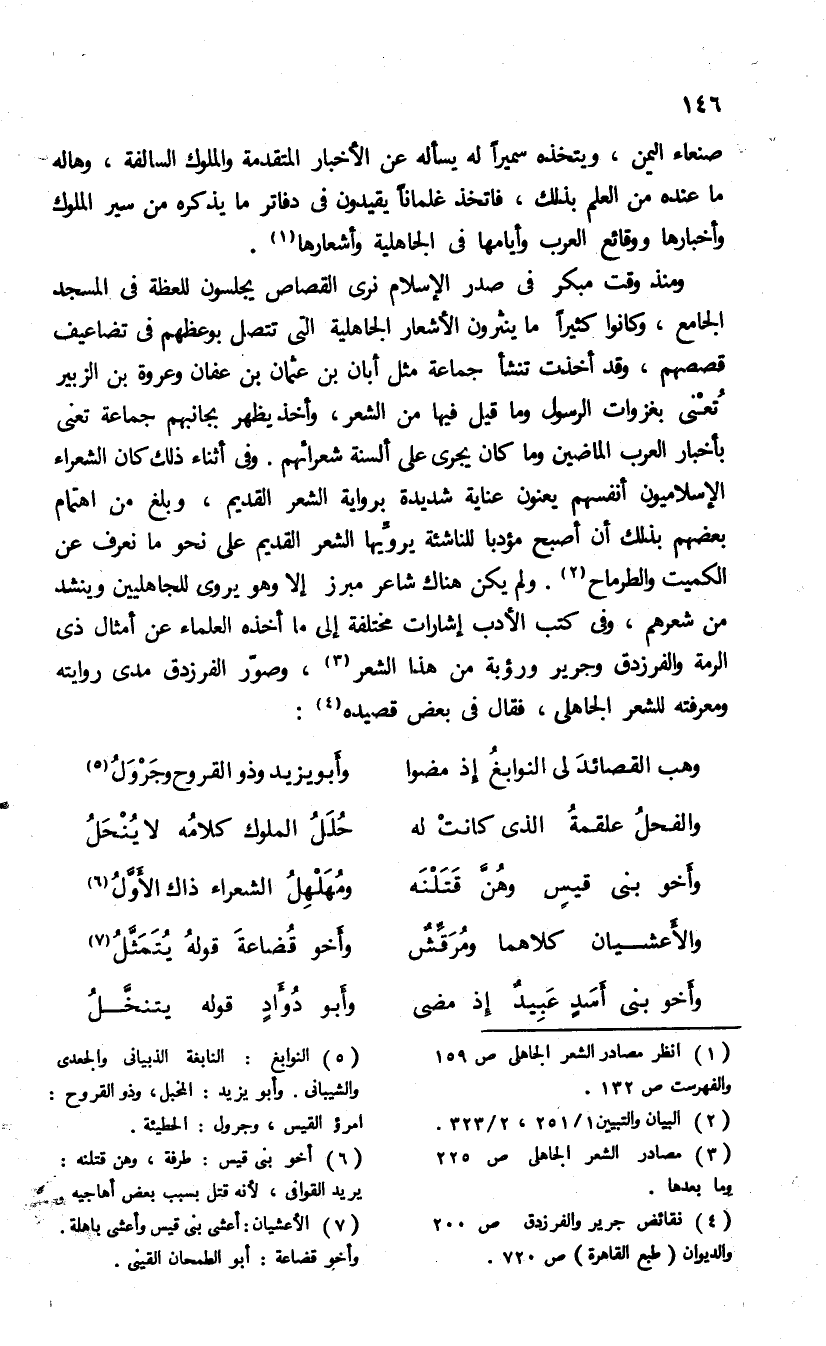 ١٤٦
صنعاء اليمن ، ويتخذه سميراً له يسأله عن الأخبار المتقدمة والملوك السالفة ، وهاله
ما عنده من العلم بذلك ، فاتخذ غلماناً يقيدون فى دفاتر ما يذكره من سير الملوك
وأخبارها ووقائع العرب وأيامها فى الجاهلية وأشعارها(١) .
ومنذ وقت مبكر فى صدر الإسلام نرى القصاص يجلسون للعظة فى المسجد
الجامع ، وكانوا كثيراً ما ينثرون الأشعار الجاهلية التى تتصل بوعظهم فى تضاعيف
قصصهم ، وقد أخذت تنشأ جماعة مثل أبان بن عثمان بن عفان وعروة بن الزبير
تُعنْى بغزوات الرسول وما قيل فيها من الشعر ، وأخذ يظهر بجانبهم جماعة تعنى
بأخبار العرب الماضين وما كان يجرى على ألسنة شعرائهم . وفى أثناء ذلك كان الشعراء
الإسلاميون أنفسهم يعنون عناية شديدة برواية الشعر القديم ، وبلغ من اهتمام
بعضهم بذلك أن أصبح مؤدبا للناشئة يروِّيها الشعر القديم على نحو ما نعرف عن
الكميت والطرماح(٢) . ولم يكن هناك شاعر مبرز إلا وهو يروى للجاهليين وينشد
من شعرهم ، وفى كتب الأدب إشارات مختلفة إلى ما أخذه العلماء عن أمثال ذى
الرمة والفرزدق وجرير ورؤبة من هذا الشعر(٣) ، وصوّر الفرزدق مدى روايته
ومعرفته للشعر الجاهلى ، فقال فى بعض قصيده(٤) :
وهب القصائدَ لى النوابغُ إذ مضوا وأبو يزيد وذو القروح وجَرْوَلُ(٥)
والفحلُ علقمةُ الذى كانتْ له حُلَلُ الملوك كلامُه لا يُنْحَلُ
وأخو بنى قيسٍ وهُنَّ قَتَلْنَه ومُهَلْهِلُ الشعراء ذاك الأَوَّلُ(٦)
والأَعشيان كلاهما ومُرَقِّشٌ وأخو قُضاعةَ قولهُ يُتَمَثَّلُ(٧)
وأَخو بنى أَسَدٍ عَبِيدٌ إذ مضى وأَبو دُوأَدٍ قوله يتنخَّلُ
(١) انظر مصادر الشعر الجاهلى ص ١٥٩
والفهرست ص ١٣٢ .
(٢) البيان والتبيين ٢٥١/١ ، ٣٢٣/٢ .
(٣) مصادر الشعر الجاهلى ص ٢٢٥
وما بعدها .
(٤) نقائض جرير والفرزدق ص ٢٠٠
والديوان ( طبع القاهرة ) ص ٧٢٠ .
(٥) النوابغ : النابغة الذبيانى والجعدى
والشيبانى . وأبو يزيد : المخبل ، وذو القروح :
امرؤ القيس ، وجرول : الحطيئة .
(٦) أخو بنى قيس : طرفة ، وهن قتلنه :
يريد القوافى ، لأنه قتل بسبب بعض أهاجيه
(٧) الأعشيان : أعشى بنى قيس وأعشى باهلة .
وأخو قضاعة : أبو الطمحان القينى .